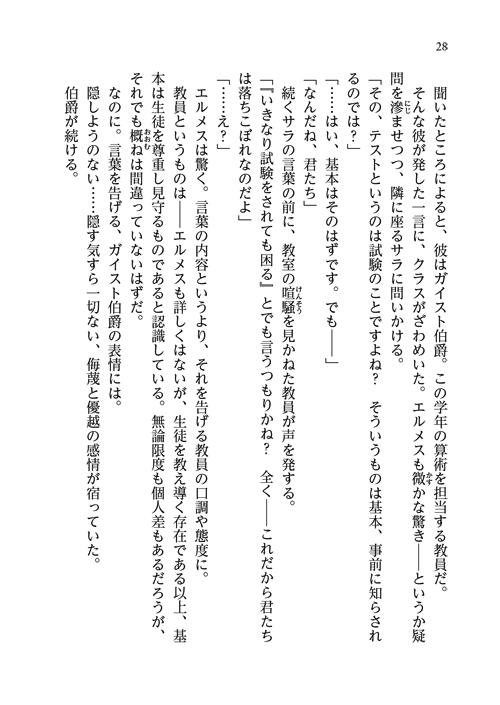 28
聞いたところによると、彼はガイスト伯爵。この学年の算術を担当する教員だ。
そんな彼が発した一言に、クラスがざわめいた。エルメスも微かな驚き――というか疑
問を滲ませつつ、隣に座るサラに問いかける。
「その、テストというのは試験のことですよね？　そういうものは基本、事前に知らされ
るのでは？」
「……はい、基本はそのはずです。でも――」
「なんだね、君たち」
続くサラの言葉の前に、教室の喧騒を見かねた教員が声を発する。
「『いきなり試験をされても困る』とでも言うつもりかね？　全く――これだから君たち
は落ちこぼれなのだよ」
「……え？」
エルメスは驚く。言葉の内容というより、それを告げる教員の口調や態度に。
教員というものは――エルメスも詳しくはないが、生徒を教え導く存在である以上、基
本は生徒を尊重し見守るものであると認識している。無論限度も個人差もあるだろうが、
それでも概ねは間違っていないはずだ。
なのに。言葉を告げる、ガイスト伯爵の表情には。
隠しようのない……隠す気すら一切ない、侮蔑と優越の感情が宿っていた。
伯爵が続ける。